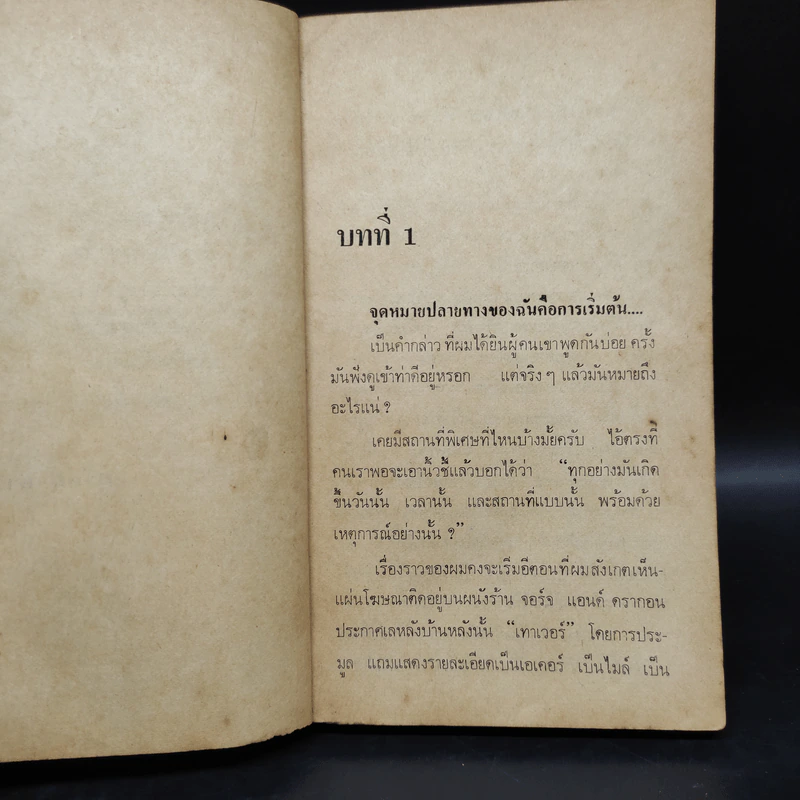 บทที่ 1
จุดหมายปลายทางของฉันคือการเริ่มต้น....
เป็นคำกล่าว ที่ผมได้ยินผู้คนเขาพูดกันบ่อย ครั้ง
มันฟังดูเข้าท่าดีอยู่หรอก แต่จริง ๆ แล้วมันหมายถึง
อะไรแน่ ?
เคยมีสถานที่พิเศษที่ไหนบ้างมั้ยครับ ไอ้ตรงที่
คนเราพอจะเอานิ้วชี้แล้วบอกได้ว่า “ทุกอย่างมันเกิด
ขึ้นวันนั้น เวลานั้น และสถานที่แบบนั้น พร้อมด้วย
เหตุการณ์อย่างนั้น ?”
เรื่องราวของผมคงจะเริ่มอีตอนที่ผมสังเกตเห็น-
แผ่นโฆษณาติดอยู่บนผนังร้าน จอร์จ แอนด์ ดรากอน
ประกาศเลหลังบ้านหลังนั้น “เทาเวอร์” โดยการประ-
มูล แถมแสดงรายละเอียดเป็นเอเคอร์ เป็นไมล์ เป็น